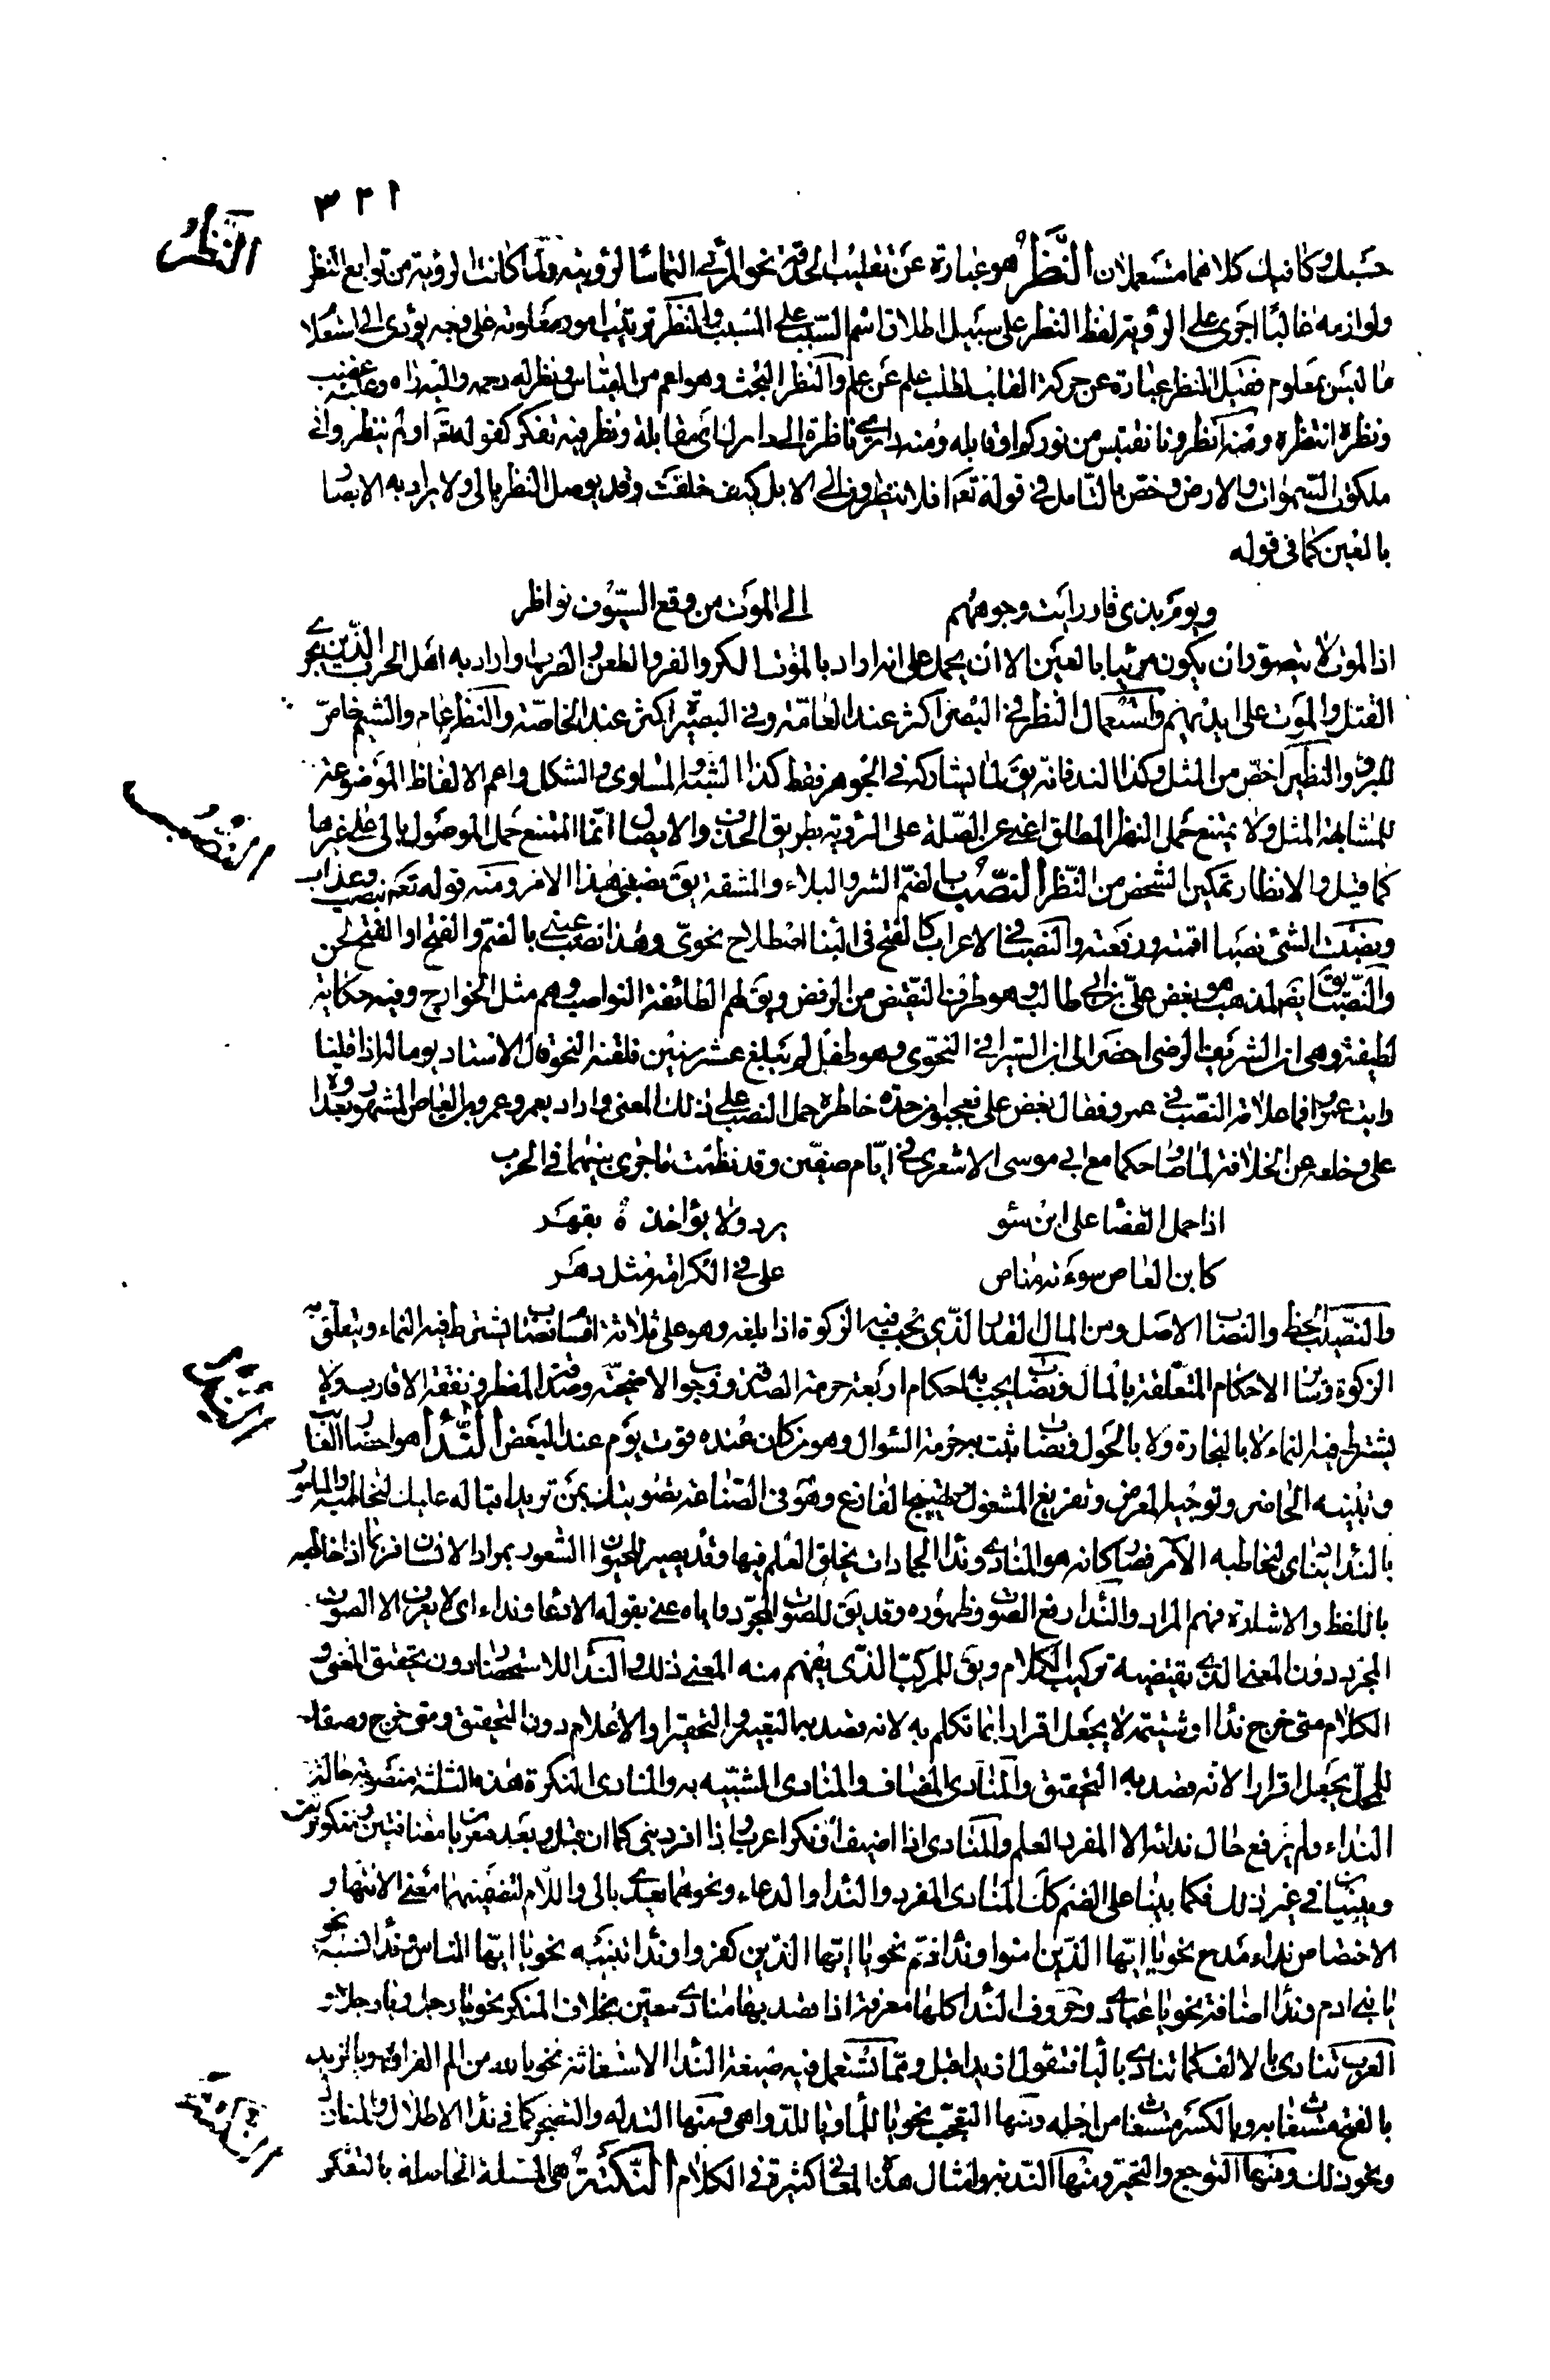 ٣٢١
النظر
حسبك وكافيك كلاهما مستعملان النَّظَرُ هو عبارة عن تقليب الحدقة نحو المرئي التماسا لرؤيته ولما كانت الرؤية من توابع النظر
ولوازمه غالبا اجرى على الرؤية لفظ النظر على سبيل اطلاق اسم السبب على المسبب والنظر ترتيب امور معلومة على وجه يؤدى الى استعلام
ما ليس بمعلوم فقيل النظر عبارة عن حركة القلب لطلب علم عن علم والنظر البحث وهو اعم من القياس ونظر له رحمه واليه راه وعليه غضب
ونظره انتظره ومنه انظرونا نقتبس من نوركم او قابله ومنه دارى ناظرة الى دارك اى مقابلة ونظر فيه تفكر كقوله تعم اولم ينظروا في
ملكوت السموات والارض وخص بالتامل في قوله تعم افلا ينظرون الى الابل كيف خلقت وقد يوصل النظر بالى ولا يراد به الابصار
بالعين كما في قوله
ويوم بذى قار رايت وجوههم الى الموت من وقع السيوف نواظر
اذ الموت لا يتصور ان يكون مرئيا بالعين الا ان يحمل على انه اراد بالموت الكر والفر والطعن والضرب او اراد به اهل الحرب الذين يجرى
القتل والموت على ايديهم واستعمال النظر في البصر اكثر عند العامة وفي البصيرة اكثر عند الخاصة والنظر عام والشيم خاص
للبرق والنظير اخص من المثل وكذا الند فانه يق لما يشاركه في الجوهر فقط كذا الشبه والمساوى والشكل واعم الالفاظ الموضوعة
للمشابهة المثل ولا يمتنع حمل النظر المطلق اعني عن الصلة على الرؤية بطريق الحذف والايصال انما الممتنع حمل الموصول بالى على غيرها
النصب
كما قيل والانظار تمكين الشخص من النظر النُّصْبُ بالضم الشر والبلاء والمشقة يق نصبنى هذا الامر ومنه قوله تعم بنصب وعذاب
ونصبت الشئ نصبا اقمته ورفعته والنصب في الاعراب كالفتح في البنا اصطلاح نحوى وهذا نصب عينى بالضم والفتح او الفتح لحن
والنصب يق ايضا لمذهب هو بغض على بن ابي طالب وهو طرف النقيض من الرفض ويق لهم الطائفة النواصب وهم مثل الخوارج وفيه حكاية
لطيفة وهى ان الشريف الرضى احضر الى ابن السيرافى النحوى وهو طفل لم يبلغ عشر سنين فلقنه النحو قال الاستاد يوما له اذا قلنا
رايت عمروا فما علامة النصب في عمرو فقال بغض على فتعجبوا من حدة خاطره حمل النصب على ذلك المعنى واراد بعمرو عمرو بن العاص المشهور بعداوة
على وخلعه عن الخلافة لما صار حكما مع ابي موسى الاشعرى في ايام صفين وقد نظمت ما جرى بينهما في الحرب
اذا حمل القضا على ابن سؤ يرد ولا يؤاخذه بقهر
كابن العاص سوءته مناص على في الكرامة مثل دهر
والنصيب الحظ والنصاب الاصل ومن المال القدر الذى يجب فيه الزكوة اذا بلغه وهو على ثلاثة اقسام نصاب يشترط فيه النماء ويتعلق به
الزكوة وسائر الاحكام المتعلقة بالمال ونصاب يجب به احكام اربعة حرمة الصدقة ووجوب الاضحية وصدقة الفطر ونفقة الاقارب ولا
يشترط فيه النماء لا بالتجارة ولا بالحول ونصاب يثبت به حرمة السؤال وهو من كان عنده قوت يوم عند البعض النِّدَا هو احضار الغائب
وتنبيه الحاضر وتوجيه المعرض وتفريغ المشغول وتهييج الفارغ وهو في الصناعة تصويتك بمن تريد اقباله عليك لتخاطبه والمامور
بالندا ينادى ليخاطبه الآمر فصار كانه هو المنادى وندا الجمادات بخلق العلم فيها وقد يصير للحيوان الشعور بمراد الانسان فربما اذا خاطبه
باللفظ والاشارة فهم المراد والندا رفع الصوت وظهوره وقد يق للصوت المجرد واياه عنى بقوله الا دعاء ونداء اى لا يعرف الا الصوت
المجرد دون المعنى الذى يقتضيه تركيب الكلام ويق للمركب الذى يفهم منه المعنى ذلك والندا للاستحضار دون تحقيق المعنى و
الكلام متى خرج ندا او شتيمة لا يجعل اقرارا بما تكلم به لانه قصد به التعيير والتحقير او الاعلام دون التحقيق ومتى خرج وصفا
للمحل يجعل اقرارا لانه قصد به التحقيق والمنادى المضاف والمنادى المشبه به والمنادى النكرة هذه الثلثة منصوبة حالة
النداء ولم يرفع حال ندائه الا المفرد العلم والمنادى اذا اضيف او نكر اعرب واذا افرد بني كما ان قبل وبعد معربان مضافتين ومنكورتين
ومبنيتان في غير ذلك فكما بنيتا على الضم كك المنادى المفرد والندا والدعاء ونحوهما يعدى بالى واللام لتضمنهما معنى الانتهاء و
الاختصاص نداء مدح نحو يا ايها الذين امنوا وندا ذم نحو يا ايها الذين كفروا وندا تنبيه نحو يا ايها الناس وندا نسبة نحو
يا بني ادم وندا اضافة نحو يا عبادى وحروف الندا كلها معرفة اذا قصد بها منادى معين بخلاف المنكر نحو يا رجل ويا رجلا و
العرب تنادى بالالف كما تنادى باليا فتقول ازيد اقبل ومما تستعمل فيه صيغة الندا الاستغاثة نحو يا لله من الم الفراق ويا لزيد
النكتة
بالفتح مستغاث به وبالكسر مستغاث من اجله ومنها التعجب نحو يا للماء ويا للدواهى ومنها التدله والتضجر كما في ندا الاطلال والمنازل
ونحو ذلك ومنها التوجع والتحير ومنها الندبة وامثال هذه المعانى كثيرة في الكلام النُّكْتَةُ هى المسئلة الحاصلة بالتفكر